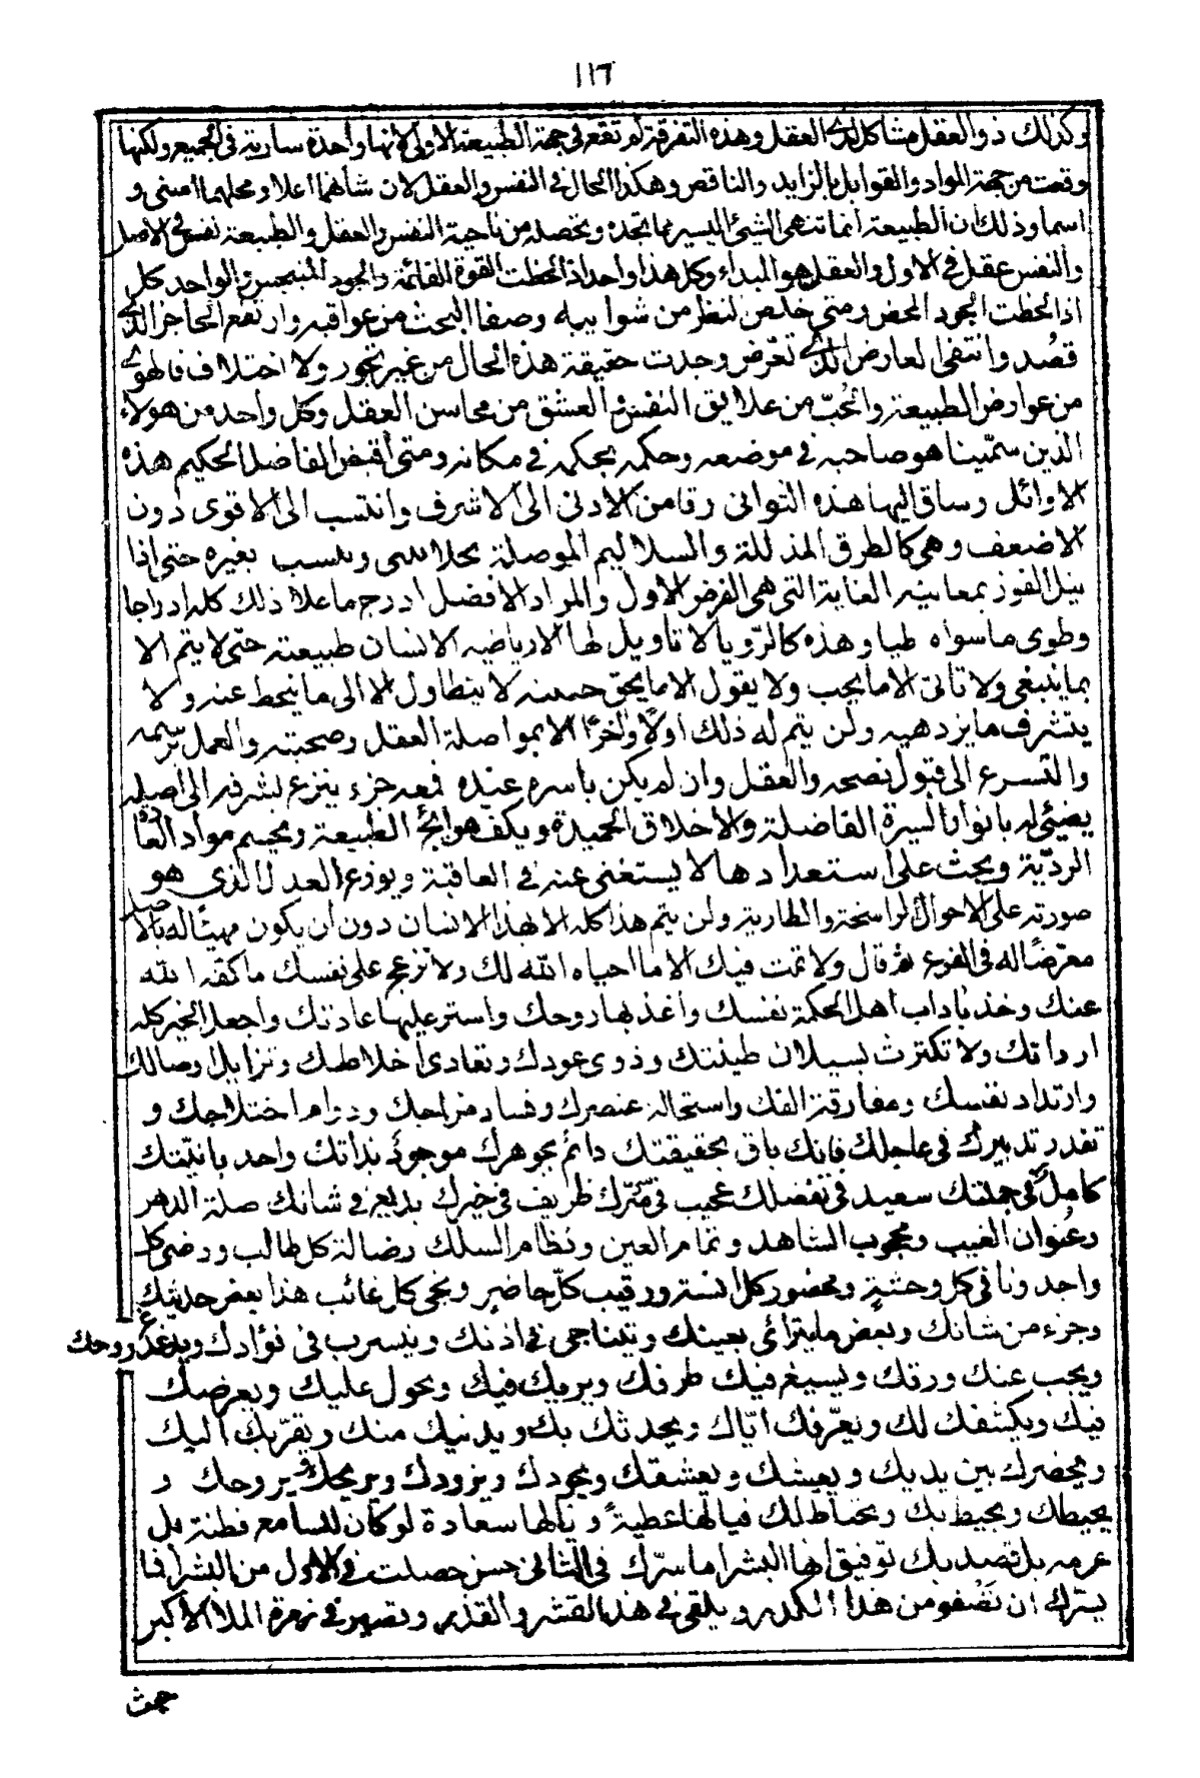 ١١٦
وكذلك ذو العقل مشاكل لذي العقل وهذه التفرقة لم تقع في جهة الطبيعة الاولى لانها واحدة سارية في الجميع ولكنها
وقعت من جهة المواد والقوابل بالزايد والناقص وهكذا الحال في النفس والعقل لان شأنهما اعلا ومحلهما اسنى و
اسما وذلك ان الطبيعة انما تنهى الشئ اليسير مما تجده وتحصله من ناحية النفس والعقل والطبيعة نفس في الاصل
والنفس عقل في الاول والعقل هو المبداء وكل هذا واحد اذا لحظت القوة القائمة والجود المنبجس والواحد كل
اذا لحظت الجود المحض ومتى خلص لنظر من شوايبه وصفا البحث من عواقبه وارتفع الحاجز الذي
قصد وانتفى العارض الذي تعرّض وجدت حقيقة هذه الحال من غير تجور ولا اختلاف فالهوى
من عوارض الطبيعة والحُبّ من علايق النفس والعشق من محاسن العقل وكل واحد من هولاء
الذين سمّينا هو صاحبه في موضعه وحكمه بحكمه في مكانه ومتى أقبض الفاضل الحكيم هذه
الاوائل وساق اليها هذه الثوانى رقا من الادنى الى الاشرف وانتسب الى الاقوى دون
الاضعف وهي كالطرق المذللة والسلاليم الموصلة بغيره حتى اذا
ينل الفوز بمعاينه الغاية التي هي الغرض الاول والمراد الافضل ادرج ماعلا ذلك كله ادراجا
وطوى ما سواه طيا وهذه كالرّويا لا تاويل لها الا رياضيه الانسان طبيعته حتى لا يتم الا
بما ينبغى ولا تاتى الا ما يجب ولا يقول الا ما يحق لا يتطاول الا الى ما ينحط عنه ولا
يتشرف ما يزدهيه ولن يتم له ذلك اولًا وآخرًا الا بمواصلة العقل وصحبته والعمل برسمه
والتسرع الى قبول نصحه والعقل وان لم يكن باسره عنده فمعه جزء ينزع لشرفه الى اصله
يضيئى له بانوار السيرة الفاضلة والاخلاق الحميدة ويكف هوائج الطبيعة ويحسم مواد العادة
الرديّة ويحث على استعداد ها لا يستغنى عنه في العاقبة ويوزع العدل الذى هو
صورته على الاحوال الراسخة والطارية ولن يتم هذا كله الا لهذا الانسان دون ان يكون مهيئا له بالاصل
معرّضًا له في الفرع ثم قال ولا تمت فيك الا ما احياه الله لك ولا تزعج على نفسك ما كفه الله
عنك وخذ باداب اهل الحكمة نفسك واغذ بها روحك واستر عليها عادتك واجعل الخير كله
ارداتك ولا تكترث بسيلان طينتك وذوى عودك وتعادى اخلاطك وتزايل وصالك
وارتداد نفسك ومفارقة الفك واستحالة عنصرك وفساد مزاجك ودوام اختلاجك و
تعذر تدبيرك في عاجلك فانك باق بحقيقتك دائم بجوهرك موجود بذاتك واحد بانيّتك
كامل في جملتك سعيد في تفضلك عجيب في سّرك ظريف في خيرك بديع في شانك صلة الدهر
وعُنوان الغيب ومحجوب الشاهد وتمام العين ونظام السلك وضالة كل طالب ورضى كل
واحد ونافي كل وحشيةٍ ومحضور كل انسة ورقيب كلّ حاضرٍ ونجى كل غائب هذا بعض حديثك
وجزء من شانك وبعض ما يترائى بعينك ويتناجى في اذنك ويتسرب في فؤادك ويدغدغ روحك
ويجب عنك ورتك ويسيغ فيك طرفك ويريك فيك ويحول عليك ويعرضك
فيك ويكشفك لك ويعرّفك ايّاك ويحدثك بك ويدنيك منك ويقرّبك اليك
ويحضرك بين يديك ويعيشك ويعشقك ويجودك ويزودك ويريحك بروحك و
يحيطك ويحيط بك ويحتاط لك فيا لها عطيةً ويا لها سعادة لو كان للسامع فطنة بل
عزمه بل تصديك توفيق ايها البشر اما سرّك في الثانى حسن حصلت في الاول من البشر افما
يسرّك ان تَصْفو من هذا الكدر ويلقى في هذا القشر والقذر وتصير في زمرة الملأ الاكبر
حيث